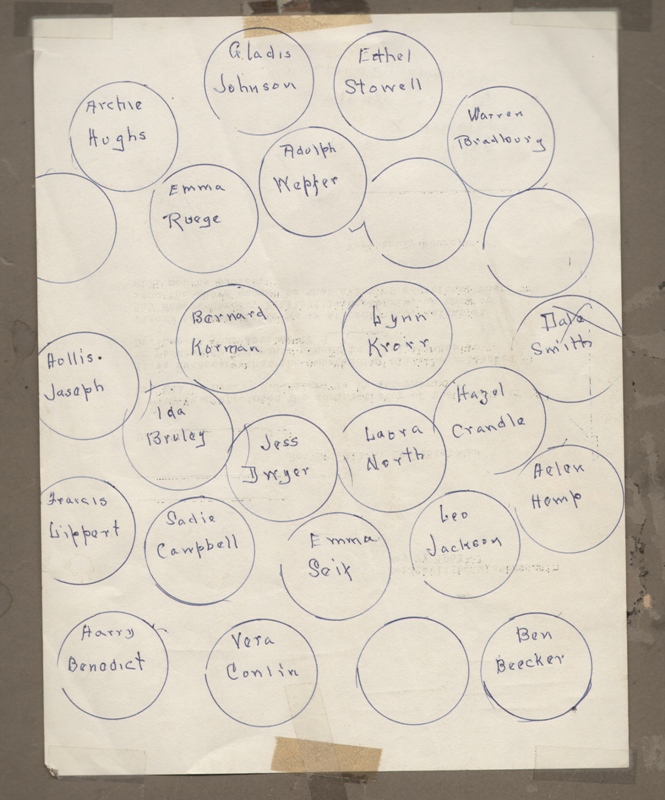 Gladis
Johnson
Ethel
Stowell
Archie
Hughs
Warren
Bradbury
Adolph
Wepfer
Emma
Ruege
Bernard
Korman
Lynn
Krorr
Dale
Smith
Hollis.
Jaseph
Ida
Bruley
Jess
Dwyer
Laora
North
Hazel
Crandle
Helen
Hemp
Francis
Lippert
Sadie
Campbell
Emma
Seik
Leo
Jackson
Harry
Benedict
Vera
Conlin
Ben
Beecker